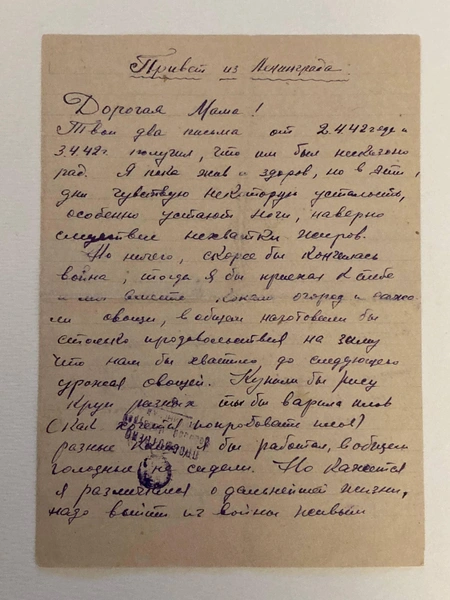 Привет из Ленинграда.
Дорогая Мама!
Твои два письма от 2.4.42 года и
3.4.42г. получил, что им был несказано
рад. Я пока жив и здоров, но в эти
дни чувствую некоторую усталость,
особенно устают ноги, наверно
следствие нехватки жиров.
Но ничего, скорее бы кончилась
война, тогда я бы приехал к тебе
и мы вместе копали огород и сажа-
ли овощи, в общем наготовили бы
столько продовольствия на зиму
что нам бы хватило до следующего
урожая овощей. Купили бы рису
круп разных ты бы варила плов
(как хочется попробовать плов)
разные бы работал, в общем
голодные не сидели. Но кажется
я размечтался о дальнейшей жизни,
надо выйти из войны живым